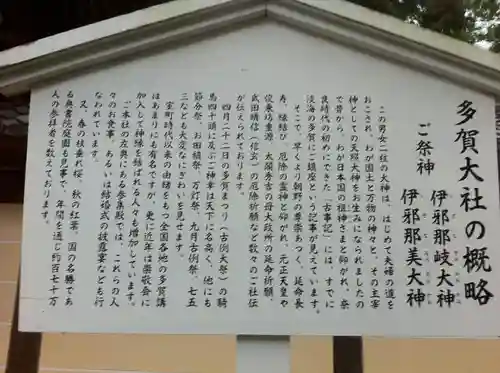 多賀大社の概略
ご祭神
伊邪那岐大神
伊邪那美大神
この男女二柱の大神は、はじめて夫婦の道を
おこされ、わが国土と万物の神々と、その主宰
神としての天照大神をお生みになられましたの
で昔から、わが日本国の祖神さまと仰がれ、奈
良時代の初めにできた「古事記」には、すでに
淡海の多賀にご鎮座という記事が見えています。
そこで、早くより朝野の尊崇あつく、延命長
寿、縁結び、厄除の霊神と仰がれ、元正天皇や
俊乗坊重源、太閤秀吉の母大政所の延命祈願、
武田晴信（信玄）の厄除祈願など数々のご社伝
が伝えられております。
四月二十二日の多賀まつり（古例大祭）の騎
馬四十頭に及ぶご神幸は天下にも名高く、他にも
節分祭、お田植祭、万灯祭、九月古例祭、七五
三なども大変なにぎわいを見せます。
室町時代以来の由緒をもつ全国各地の多賀講
はあまりにも有名ですが、更に近年は崇敬会に
加入して神縁を結ばれる人々も増加しています。
ご本社の左奥にある参集殿では、これらの人
々のお食事、あるいは結婚式の披露宴なども行
なわれています。
又、春の枝垂れ桜、秋の紅葉、国の名勝であ
る奥書院庭園も見事で、年間を通じ約百七十万
人の参拝者を数えております。